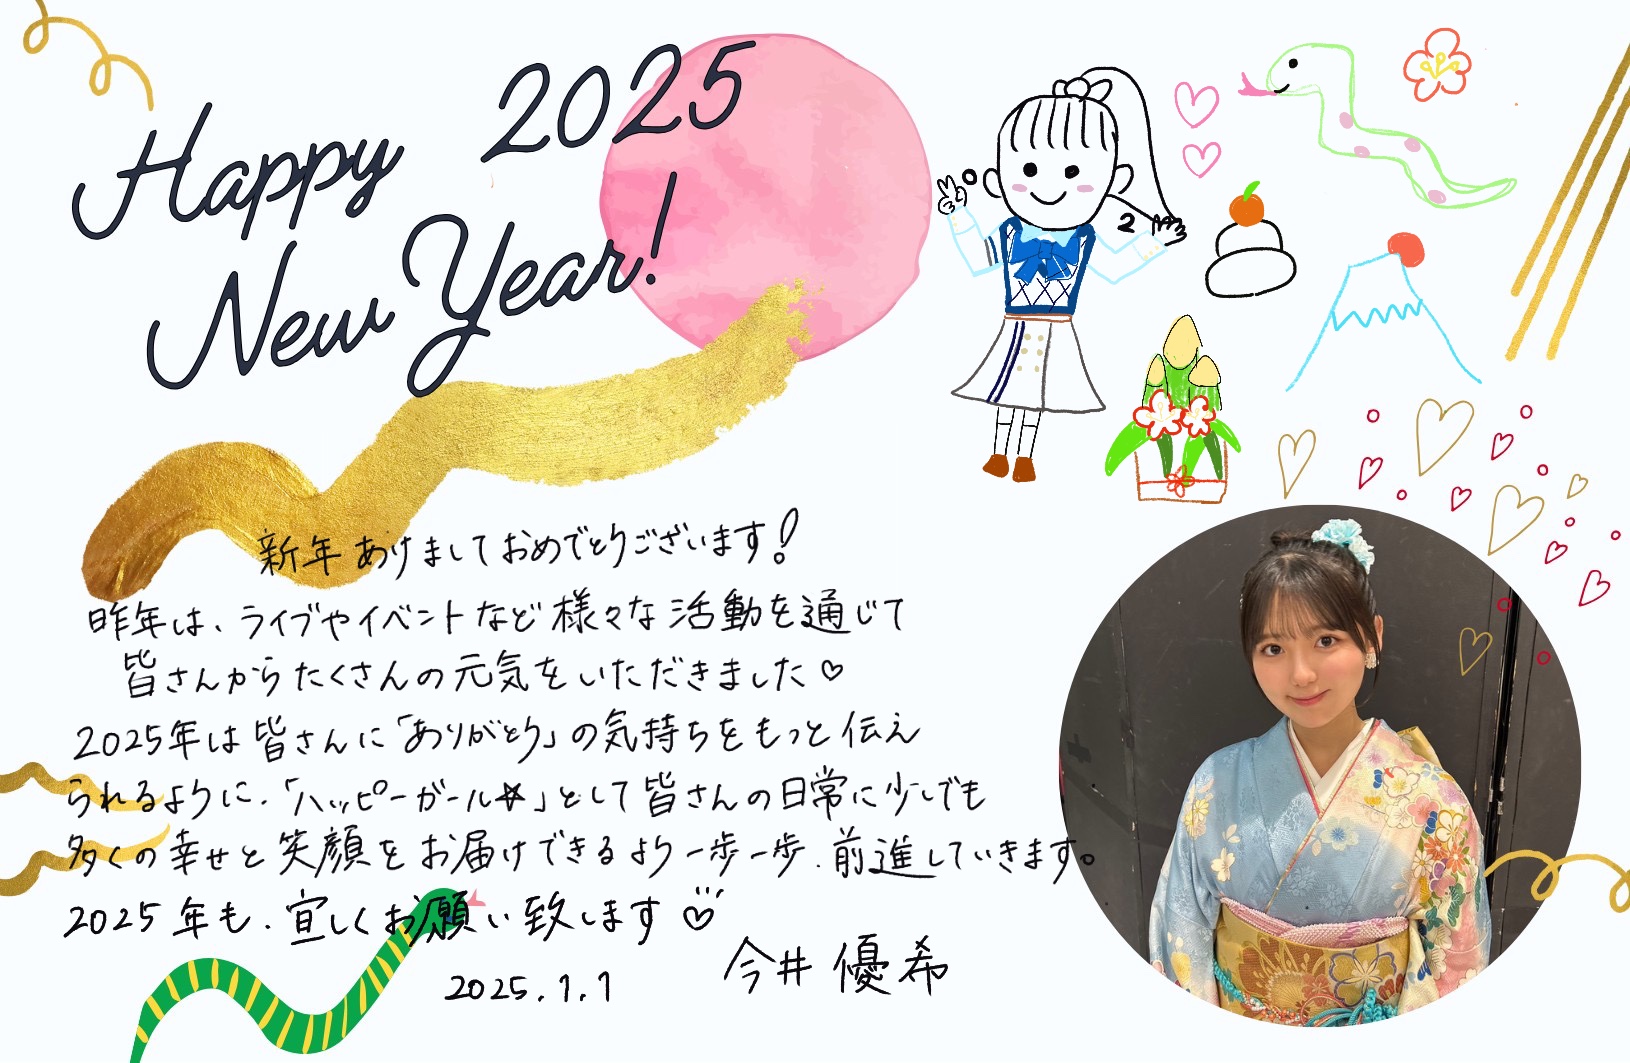 Happy 2025
New Year!
2
新年あけましておめでとうございます!
昨年は、ライブやイベントなど様々な活動を通じて
皆さんからたくさんの元気をいただきました♡
2025年は皆さんに「ありがとう」の気持ちをもっと伝え
られるように、「ハッピーガール☆」として皆さんの日常に少しでも
多くの幸せと笑顔をお届けできるよう一歩一歩、前進していきます。
2025年も、宜しくお願い致します♡
2025.1.1 今井優希